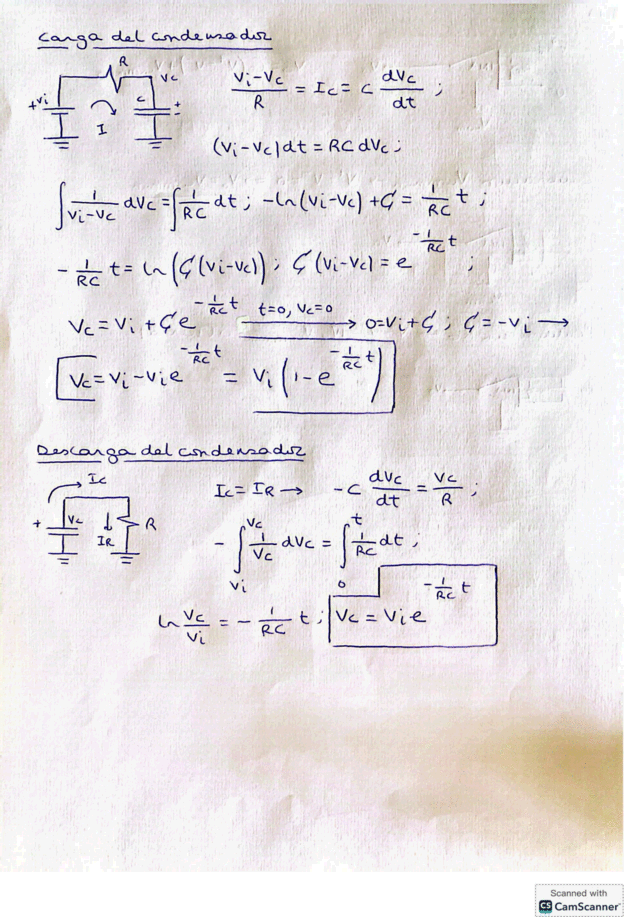 Carga del condensador
R
+Vi Vc
C + =
I
(Vi-Vc)/R = Ic = C dVc/dt ;
(Vi-Vc)dt = RC dVc ;
∫ 1/(Vi-Vc) dVc = ∫ 1/RC dt ; -ln(Vi-Vc) + ζ = 1/RC t ;
- 1/RC t = ln(ζ(Vi-Vc)) ; ζ(Vi-Vc) = e^(-1/RC t) ;
Vc = Vi + ζe^(-1/RC t) t=0, Vc=0 → 0=Vi+ζ ; ζ=-Vi →
Vc = Vi-Vie^(-1/RC t) = Vi (1-e^(-1/RC t))
Descarga del condensador
Ic
+ Vc IR R
Ic = IR → -C dVc/dt = Vc/R ;
- ∫_Vi^Vc 1/Vc dVc = ∫_0^t 1/RC dt ,
ln Vc/Vi = - 1/RC t ; Vc = Vie^(-1/RC t)
Scanned with
CS CamScanner